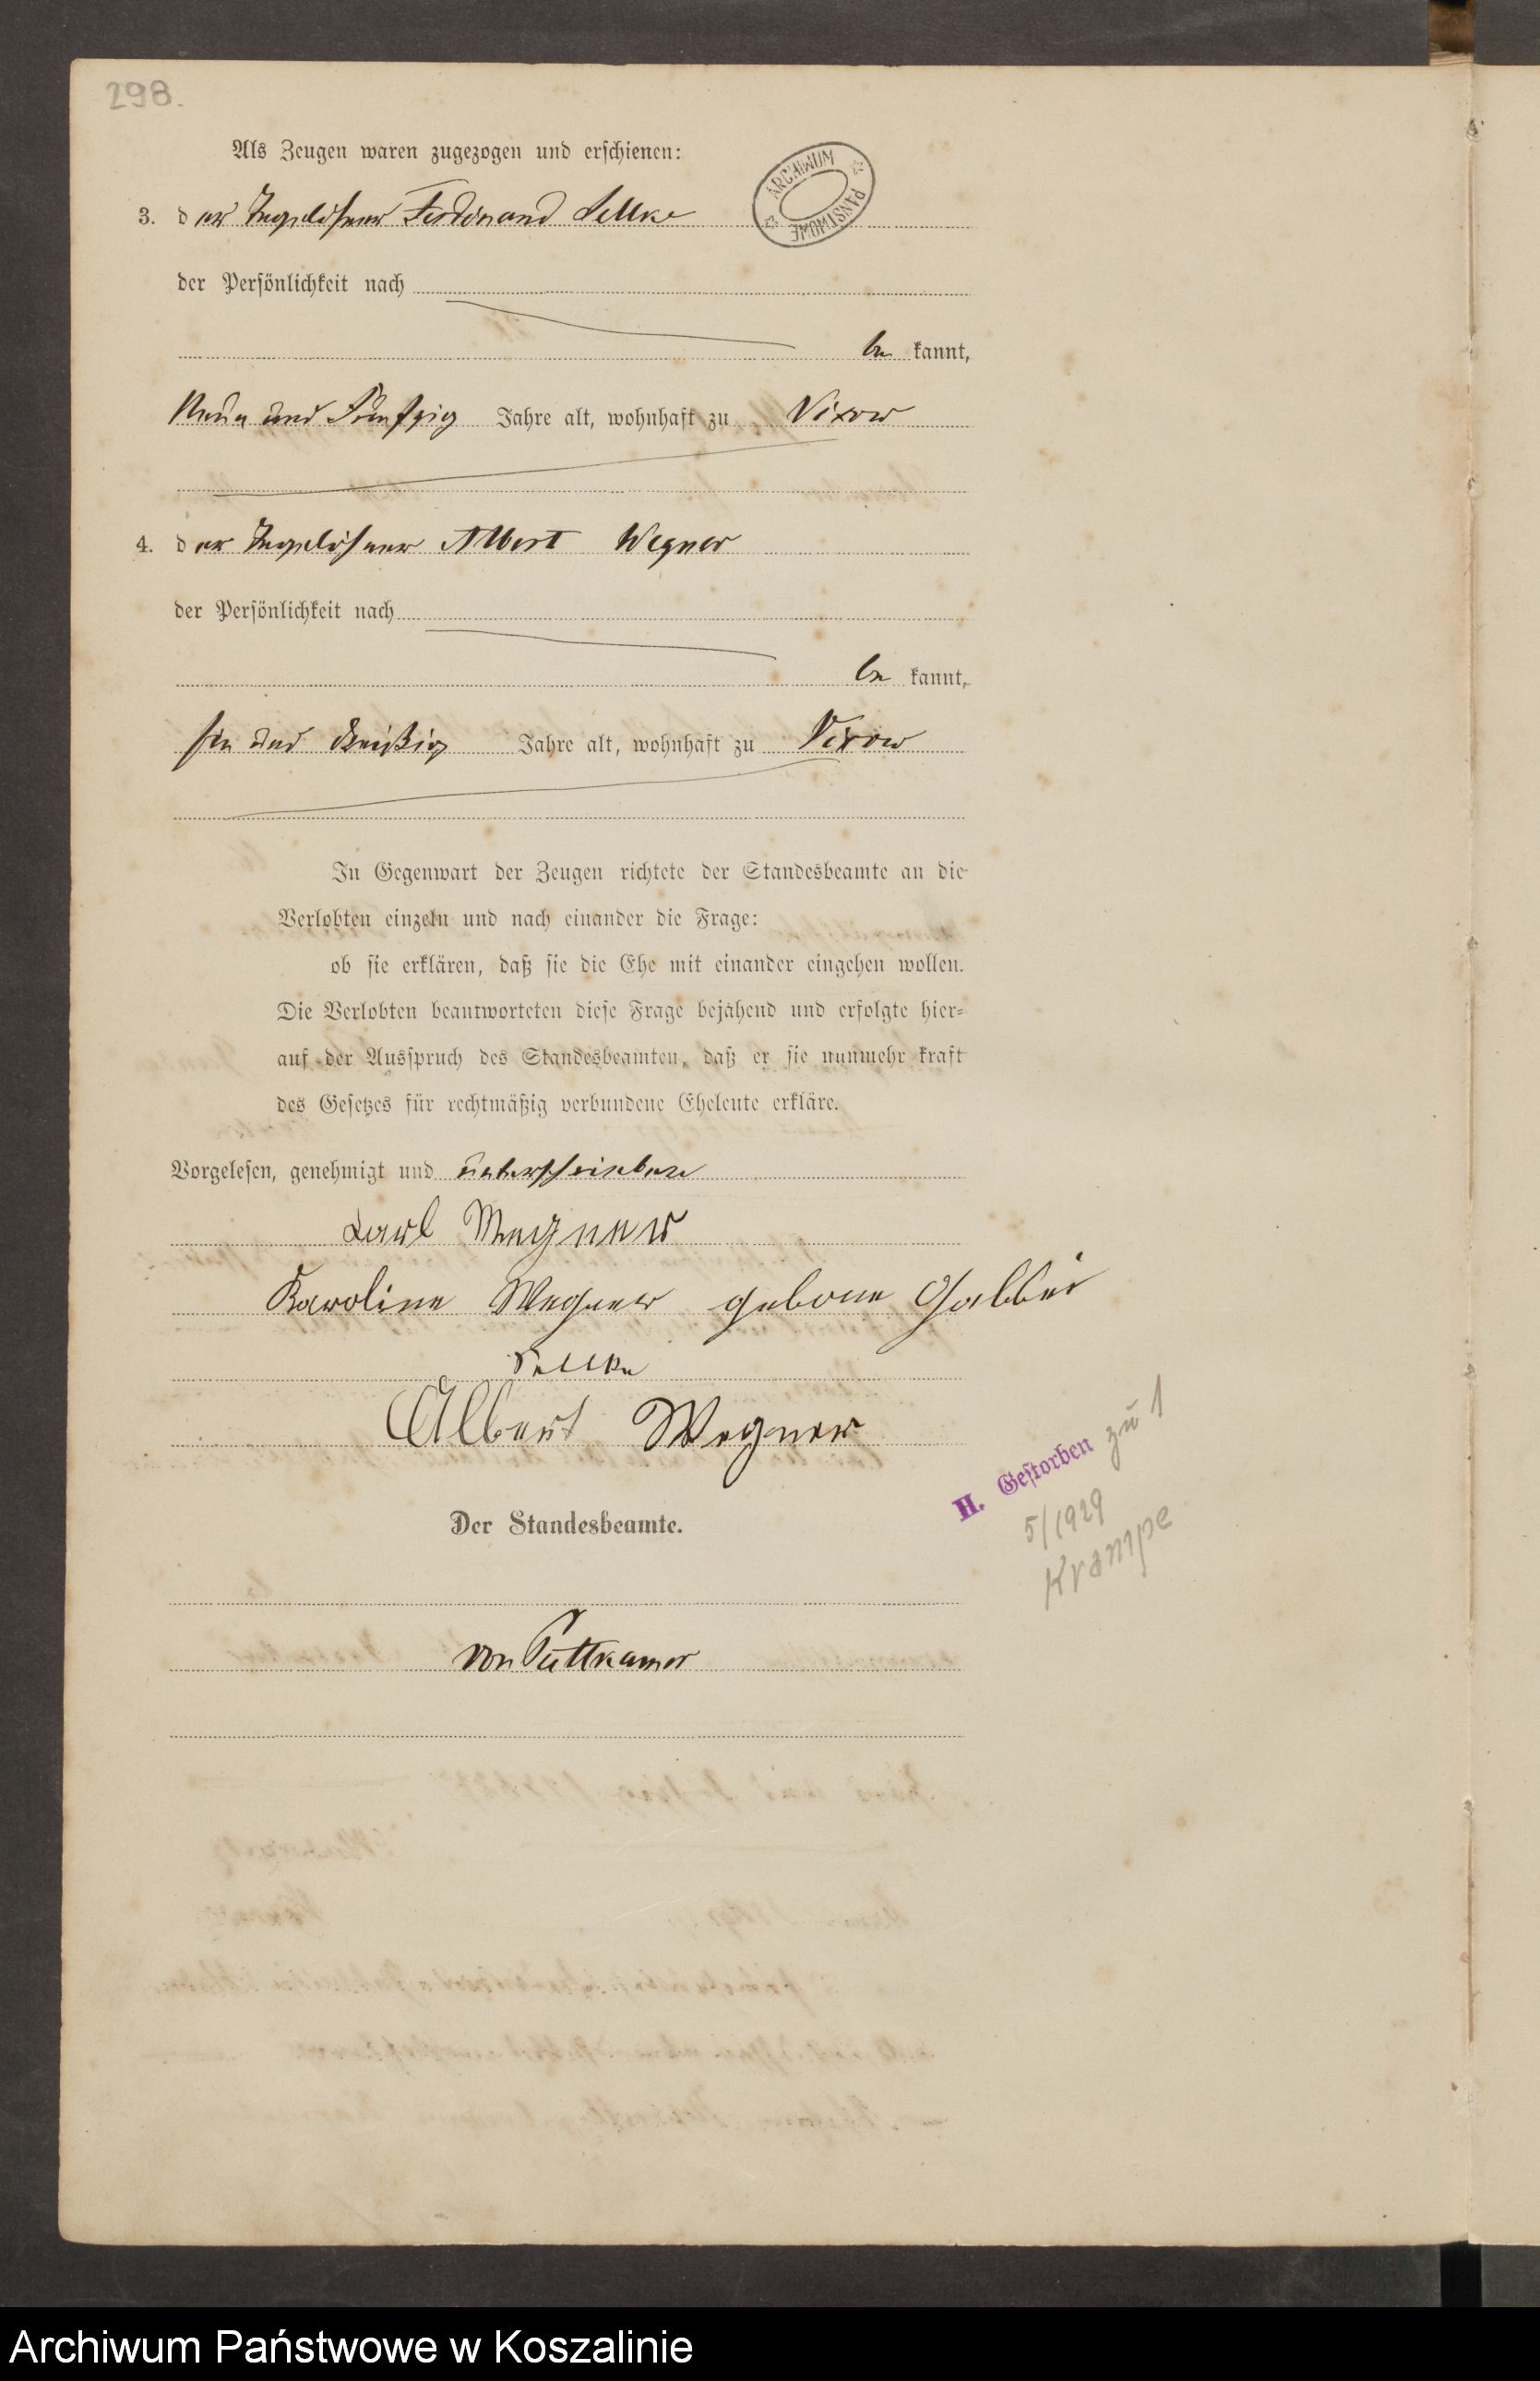 298.
Als Zeugen waren zugezogen und erschienen:
ARCHIWUM PAŃSTWOWE
3. der Tagelöhner Ferdinand Sellke
der Persönlichkeit nach
be kannt,
Neun und Fünfzig Jahre alt, wohnhaft zu Vixow
4. der Tagelöhner Albert Wegner
der Persönlichkeit nach
be kannt,
und dreißig Jahre alt, wohnhaft zu Vixow
In Gegenwart der Zeugen richtete der Standesbeamte an die
Verlobten einzeln und nach einander die Frage:
ob sie erklären, daß sie die Ehe mit einander eingehen wollen.
Die Verlobten beantworteten diese Frage bejahend und erfolgte hier=
auf der Ausspruch des Standesbeamten, daß er sie nunmehr kraft
des Gesetzes für rechtmäßig verbundene Eheleute erkläre.
Vorgelesen, genehmigt und unterschrieben
Karl Wegner
Karoline Wegner
Sellke
Albert Wegner
H. Gestorben zu 1
5/1929
Krampe
Der Standesbeamte.
von Puttkamer
Archiwum Państwowe w Koszalinie